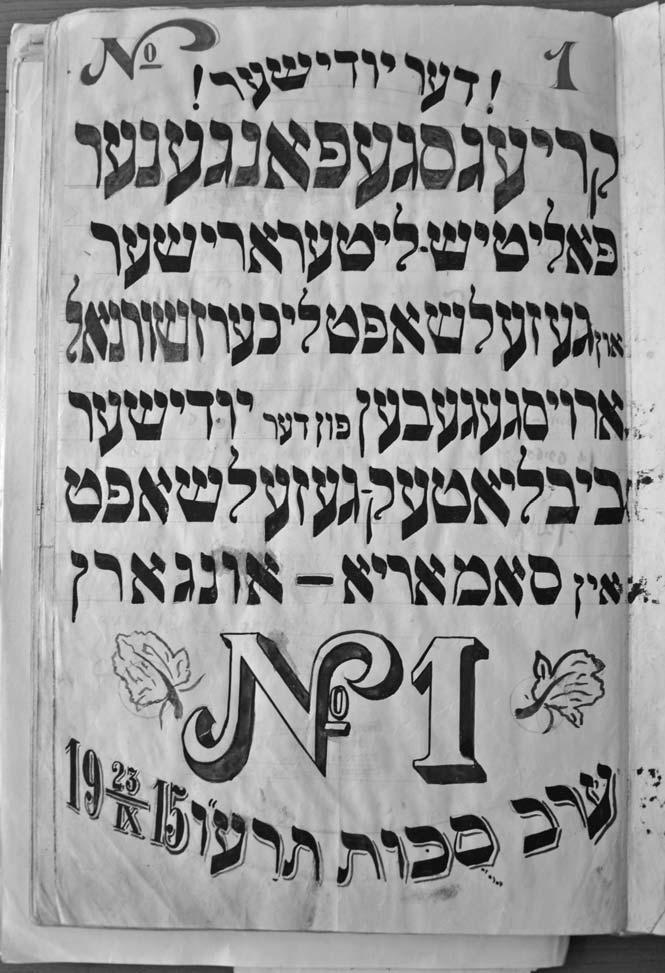 № 1
!דער יודישער!
קריעגסגעפאנגענער
פאליטיש-ליטערארישער
און געזעלשאפטליכער זשורנאל
ארויסגעגעבען פון דער יודישער
ביבליאטעק-געזעלשאפט
אין סאמאריא – אונגארן
№ 1
ערב סכות תרע"ו 19 23/IX 15